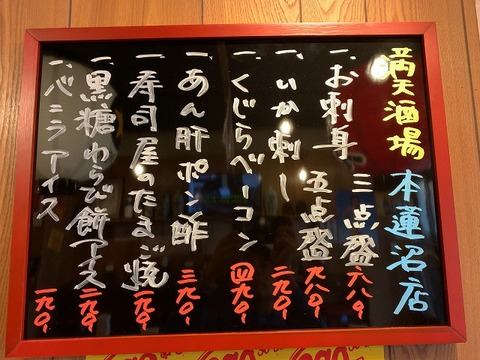 満天酒場 本蓮沼店
一、お刺身 三点盛 六八九
五点盛 九八九
一、いか刺し 二九〇
一、くじらベーコン 四九〇
一、あん肝ポン酢 三九〇
一、寿司屋のたまご焼 一九〇
一、黒糖わらび餅アイス 二九〇
一、バニラアイス 一九〇